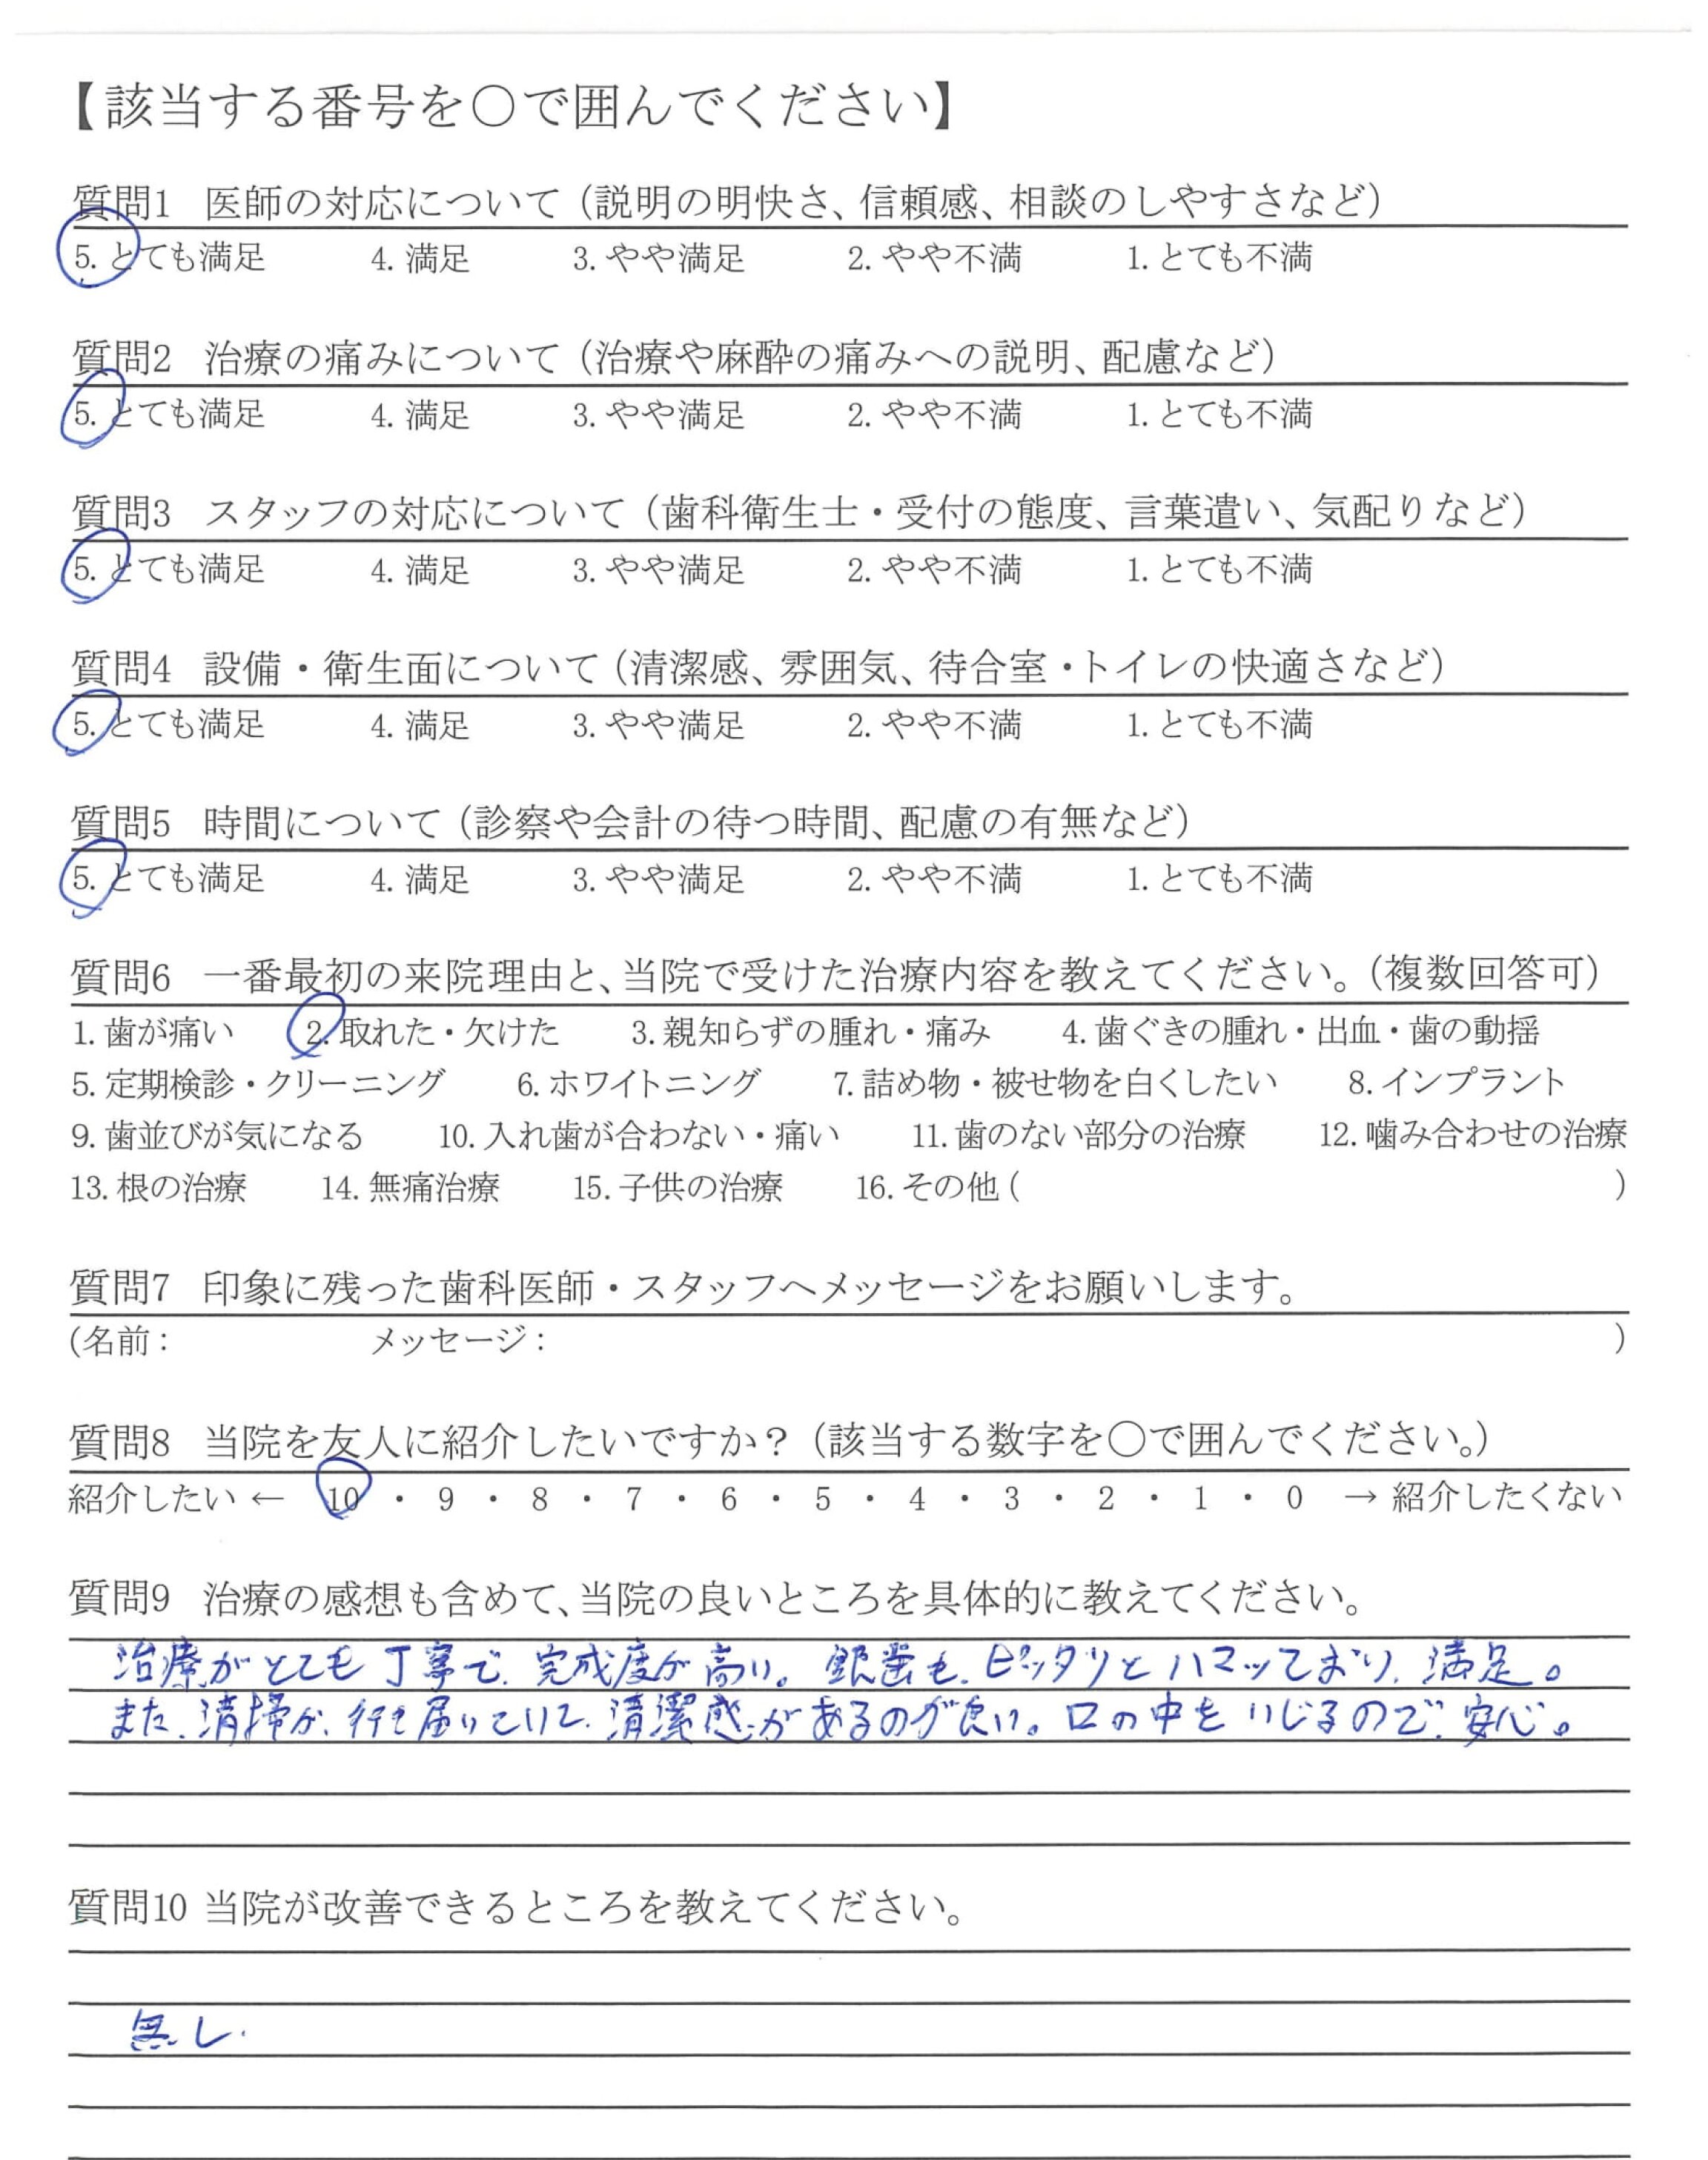 【該当する番号を〇で囲んでください】
質問1 医師の対応について（説明の明快さ、信頼感、相談のしやすさなど）
5. とても満足 4. 満足 3. やや満足 2. やや不満 1. とても不満
質問2 治療の痛みについて（治療や麻酔の痛みへの説明、配慮など）
5. とても満足 4. 満足 3. やや満足 2. やや不満 1. とても不満
質問3 スタッフの対応について（歯科衛生士・受付の態度、言葉遣い、気配りなど）
5. とても満足 4. 満足 3. やや満足 2. やや不満 1. とても不満
質問4 設備・衛生面について（清潔感、雰囲気、待合室・トイレの快適さなど）
5. とても満足 4. 満足 3. やや満足 2. やや不満 1. とても不満
質問5 時間について（診察や会計の待つ時間、配慮の有無など）
5. とても満足 4. 満足 3. やや満足 2. やや不満 1. とても不満
質問6 一番最初の来院理由と、当院で受けた治療内容を教えてください。（複数回答可）
1. 歯が痛い 2. 取れた・欠けた 3. 親知らずの腫れ・痛み 4. 歯ぐきの腫れ・出血・歯の動揺
5. 定期検診・クリーニング 6. ホワイトニング 7. 詰め物・被せ物を白くしたい 8. インプラント
9. 歯並びが気になる 10. 入れ歯が合わない・痛い 11. 歯のない部分の治療 12. 噛み合わせの治療
13. 根の治療 14. 無痛治療 15. 子供の治療 16. その他（ ）
質問7 印象に残った歯科医師・スタッフへメッセージをお願いします。
（名前： メッセージ： ）
質問8 当院を友人に紹介したいですか？（該当する数字を〇で囲んでください。）
紹介したい ← 10 ・ 9 ・ 8 ・ 7 ・ 6 ・ 5 ・ 4 ・ 3 ・ 2 ・ 1 ・ 0 → 紹介したくない
質問9 治療の感想も含めて、当院の良いところを具体的に教えてください。
治療がとても丁寧で、完成度が高い。銀歯も、ピッタリとハマッており、満足。
また、清掃が、行き届いていて、清潔感があるのが良い。口の中をいじるので、安心。
質問10 当院が改善できるところを教えてください。
無し.